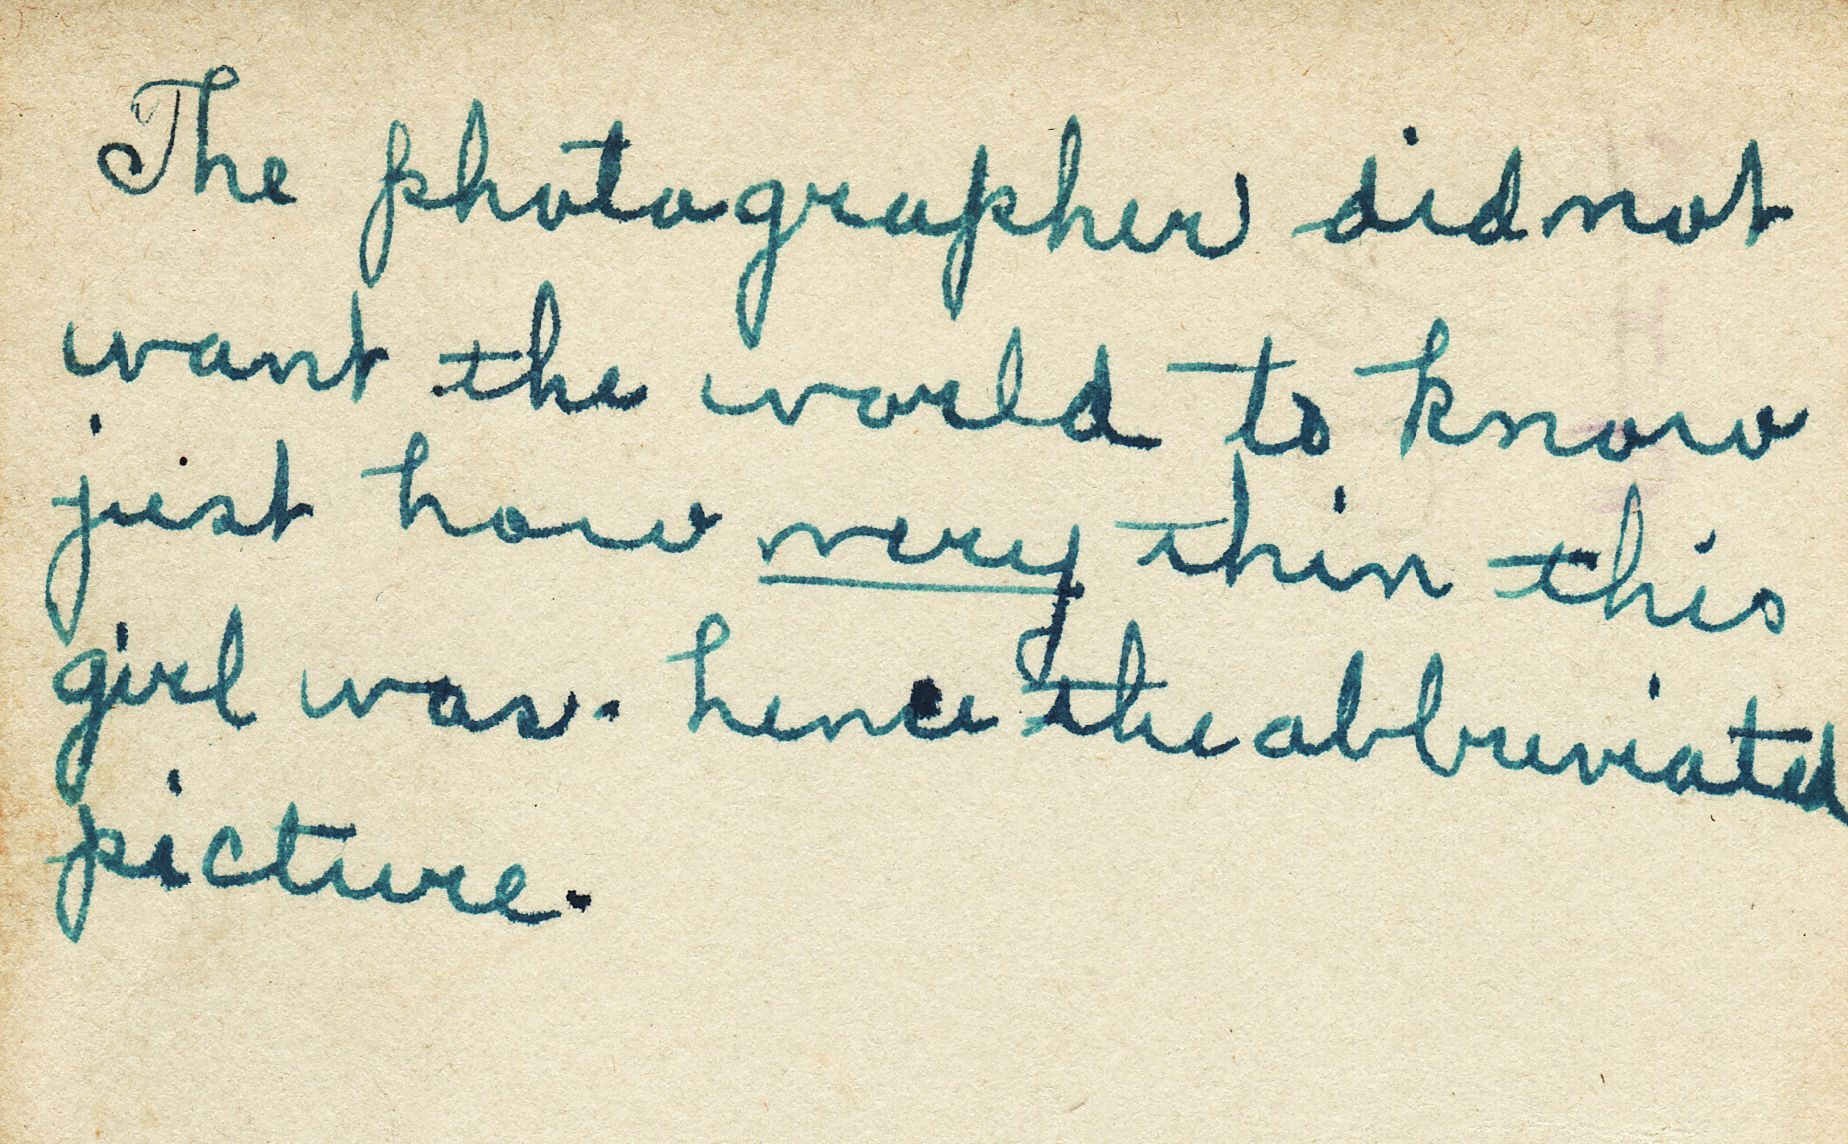 The photographer did not
want the world to know
just how very thin this
girl was. hence the abbreviated
picture.